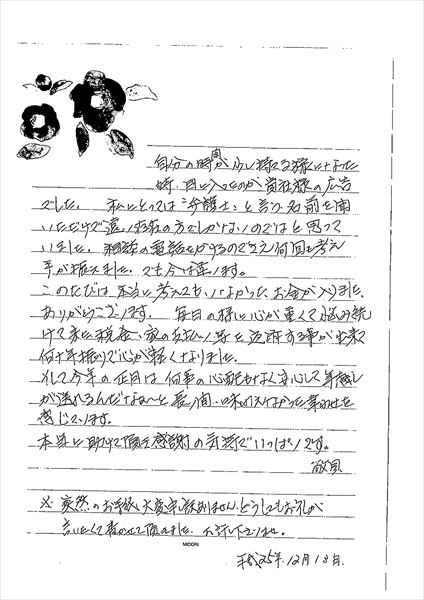 自分の時間が少し持てる様になった
時、目に入ったのが貴社様の広告
でした。私にとっては"弁護士"と言う名前を聞
いただけで遠い存在の方でしかないのではと思って
いました。相談の電話をかけるのでさえ何回も考え
手が振えました。でも今は違います。
このたびは、本当に考えてもいなかったお金が入りました。
ありがとうございます。毎日の様に心が重くて悩み続
けて来た税金、家の支払い等を返済する事が出来て
何十年振りで心が軽くなりました。
そして今年の正月は何事の心配もなく安心して年越し
が送れるんだなぁ〜と長い間、味わえなかった幸せを
感じています。
本当に助けて頂き感謝の気持でいっぱいです。
敬具
※ 突然のお手紙、大変失礼しません。どうしてもお礼が
言いたくて書かせて頂きました。お許し下さいませ。
MIDORI
平成25年12月18日